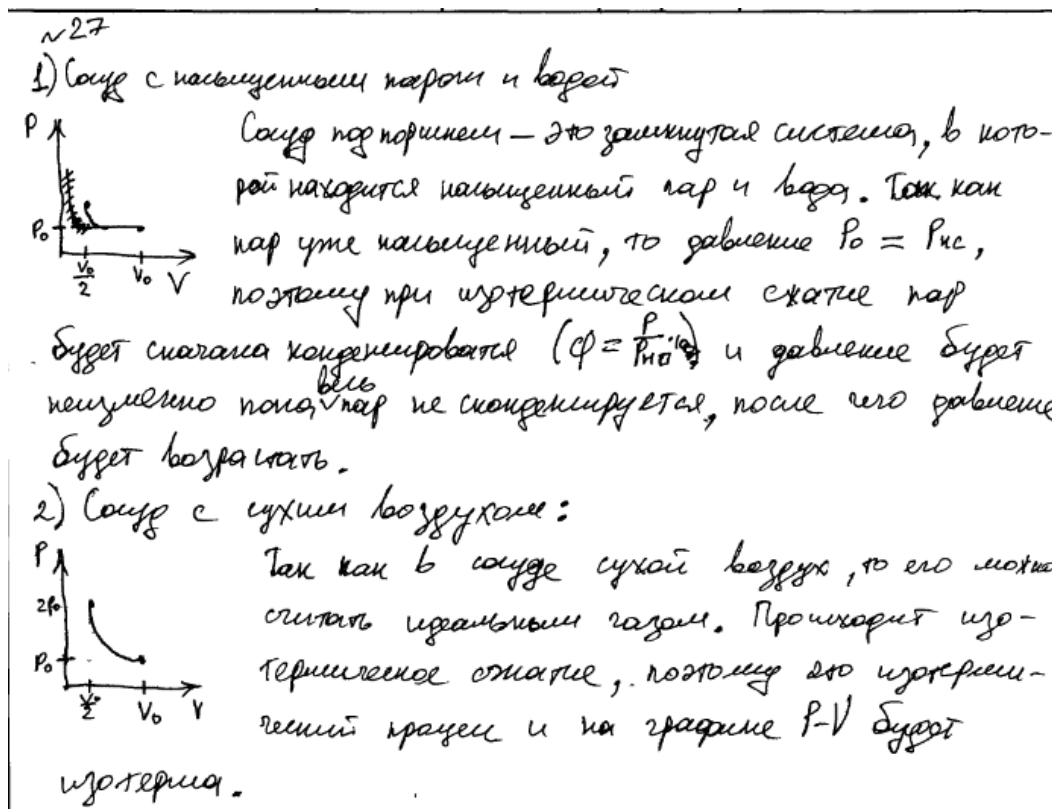 №27
1) Сосуд с насыщенным паром и водой
P
P₀
V₀/2
V₀
V
Сосуд под поршнем – это замкнутая система, в кото-
рой находится насыщенный пар и вода. Так как
пар уже насыщенный, то давление P₀ = Pнс,
поэтому при изотермическом сжатие пар
будет сначала конденсироватся (φ = P/Pнп
) и давление будет
неизменно пока, весь пар не сконденсируется, после чего давление
будет возрастать.
2) Сосуд с сухим воздухом:
P
2P₀
P₀
V₀/2
V₀
V
Так как в сосуде сухой воздух, то его можно
считать идеальным газом. Происходит изо-
термическое сжатие, поэтому это изотерми-
ческий процесс и на графике P-V будет
изотерма.